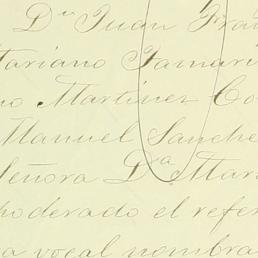 Dⁿ Juan Fran
Mariano Tamari
no Martinez Co
Manuel Sanche
Señora Dʳᵃ Mar
poderado el refer
a vocal nombra